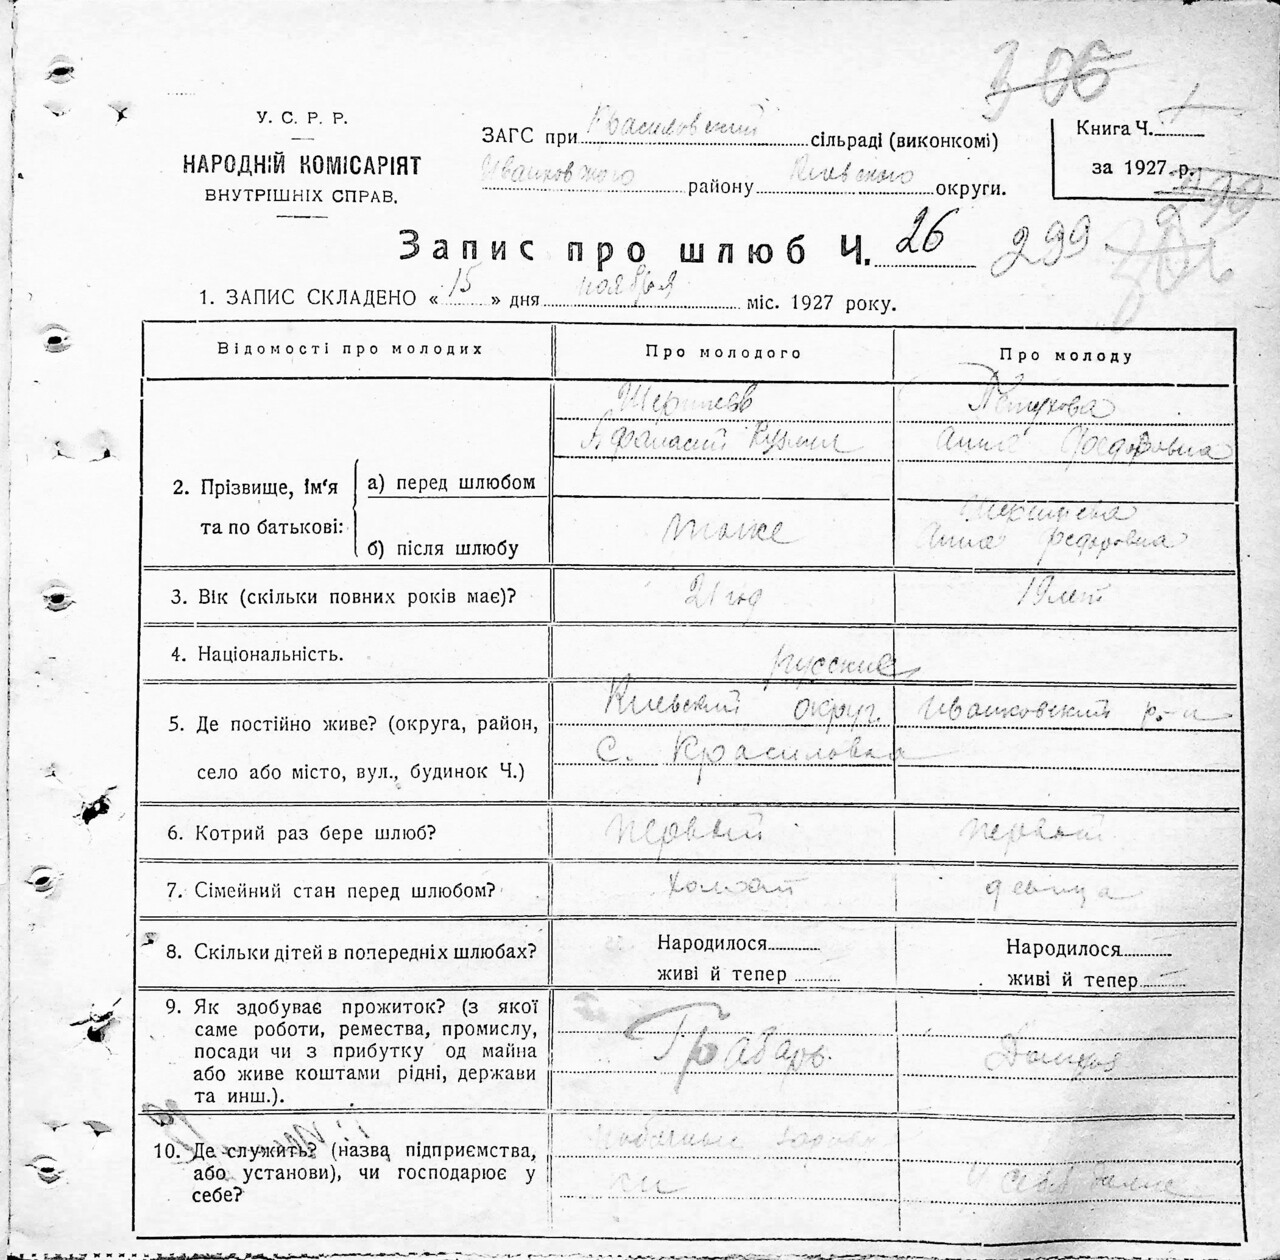 306
У. С. Р. Р.
НАРОДНІЙ КОМІСАРІЯТ
ВНУТРІШНІХ СПРАВ.
ЗАГС при Красиловский сільраді (виконкомі)
Иванковского району Киевского округи.
Книга Ч.
за 1927 р.
299
Запис про шлюб Ч. 26
299
1. ЗАПИС СКЛАДЕНО « 15 » дня ноября міс. 1927 року.
Відомості про молодих
Про молодого
Про молоду
2. Прізвище, ім'я та по батькові:
а) перед шлюбом
Афанасий Кузмич
Петухова
Анна Федоровна
б) після шлюбу
тоже
Анна Федоровна
3. Вік (скільки повних років має)?
21 год
19 лет
4. Національність.
русские
5. Де постійно живе? (округа, район,
село або місто, вул., будинок Ч.)
Киевский округ. Иванковский р-н
С. Красиловка
6. Котрий раз бере шлюб?
первый
первый
7. Сімейний стан перед шлюбом?
холост
девица
8. Скільки дітей в попередніх шлюбах?
Народилося
живі й тепер
Народилося
живі й тепер
9. Як здобуває прожиток? (з якої
саме роботи, ремества, промислу,
посади чи з прибутку од майна
або живе коштами рідні, держави
та инш.).
Грабарь.
10. Де служить? (назва підприємства,
або установи), чи господарює у
себе?
у себя дома